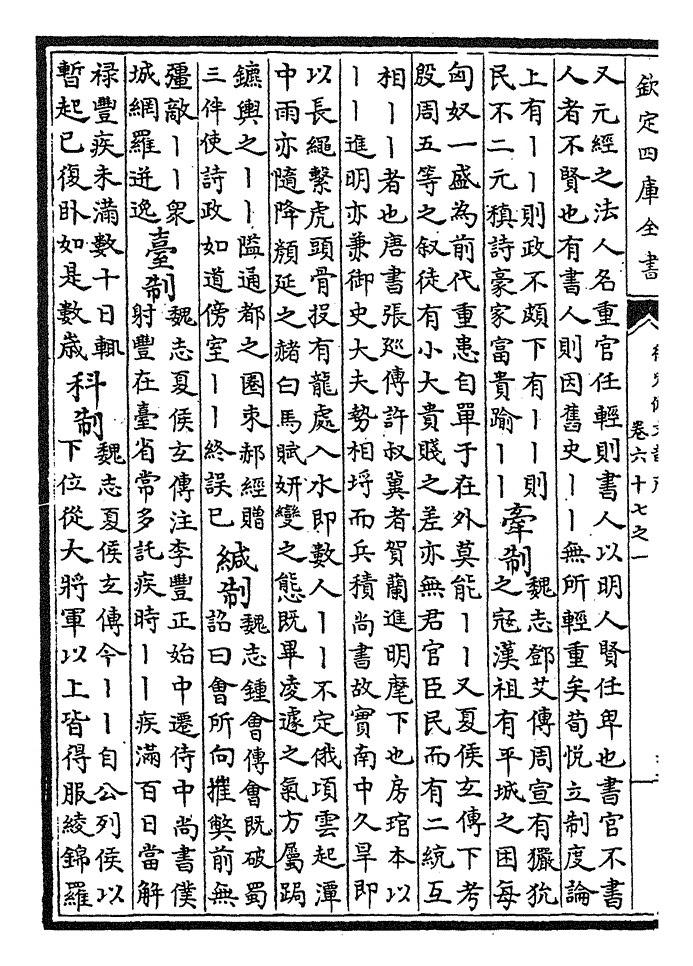 欽定四庫全書
卷六十七之一
又元經之法人名重官任輕則書人以明人賢任卑也書官不書
人者不賢也有書人則因舊史丨丨無所輕重矣荀悅立制度論
上有丨丨則政不頗下有丨丨則
民不二元稹詩豪家富貴踰丨丨
牽制
魏志鄧艾傳周宣有玁狁
之寇漢祖有平城之困每
匈奴一盛為前代重患自單于在外莫能丨丨又夏侯玄傳下考
殷周五等之叙徒有小大貴賤之差亦無君官臣民而有二統互
相丨丨者也唐書張廵傳許叔冀者賀蘭進明麾下也房琯本以
丨丨進明亦兼御史大夫勢相埒而兵積尚書故實南中久旱即
以長繩繫虎頭骨投有龍處入水即數人丨丨不定俄頃雲起潭
中雨亦隨降顏延之赭白馬賦妍變之態既畢凌遽之氣方屬跼
鑣轡之丨丨隘通都之圈束郝經贈
三伴使詩政如道傍室丨丨終誤已
緘制
魏志鍾會傳會既破蜀
詔曰會所向摧獘前無
彊敵丨丨衆
城網羅迸逸
臺制
魏志夏侯玄傳注李豐正始中遷侍中尚書僕
射豐在臺省常多託疾時丨丨疾滿百日當解
祿豐疾未滿數十日輒
暫起已復卧如是數歲
科制
魏志夏侯玄傳今丨丨自公列侯以
下位從大將軍以上皆得服綾錦羅